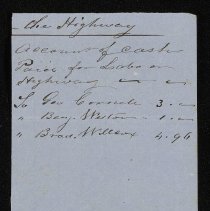 The Highway
Account of Cash
Paid for Labor on
Highway
To Geo 3.
" Benj. Weston 1.
" Brad. Willcox 4.96